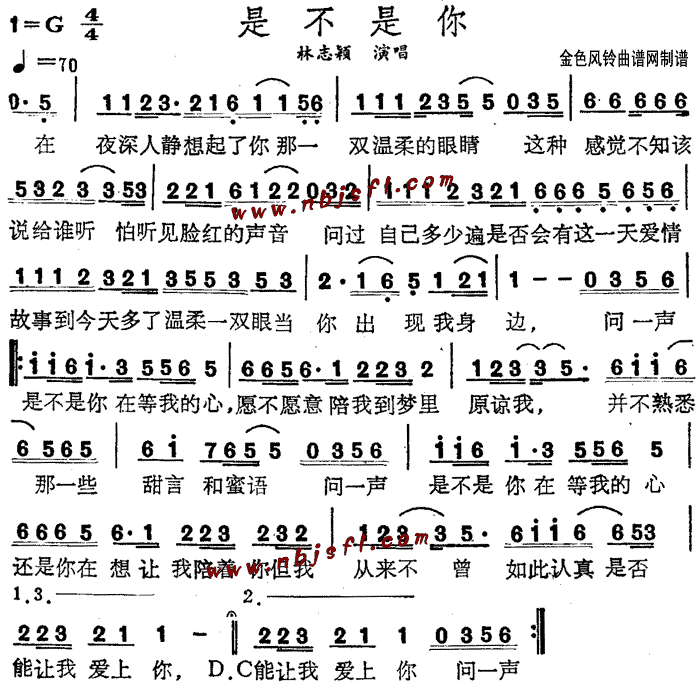 1=G 4/4 是不是你
林志颖 演唱 金色风铃曲谱网制谱
♩=70
0·5 | 1123·216 1156 | 111235 5 035 | 66 6666
在 夜深人静想起了你那一 双温柔的眼睛 这种 感觉不知该
5323 353 | 221 6122032 | 1112 321 6665 656
说给谁听 怕听见脸红的声音 问过 自己多少遍是否会有这一天爱情
www.nbjsfl.com
1112 321 3553 353 | 2·16·5 121 | 1 - - 0356
故事到今天多了温柔一双眼当 你出现我身边, 问一声
‖: i i 6 i·3 5565 | 6656·1 2232 | 1233 5· 6 i i 6
是不是你在等我的心,愿不愿意陪我到梦里 原谅我, 并不熟悉
6 565 | 6 i 7655 0356 | i i 6 i·3 556 5
那一些 甜言和蜜语 问一声 是不是你在等我的心
6665 6·1 223 232 | 123 35· 6 i i 6 653 |
还是你在想让我陪着你但我 从来不曾 如此认真是否
www.nbjsfl.com
1.3. 2.
223 21 1 - ‖ 223 21 1 0356 :‖
能让我爱上你, D.C能让我爱上你 问一声